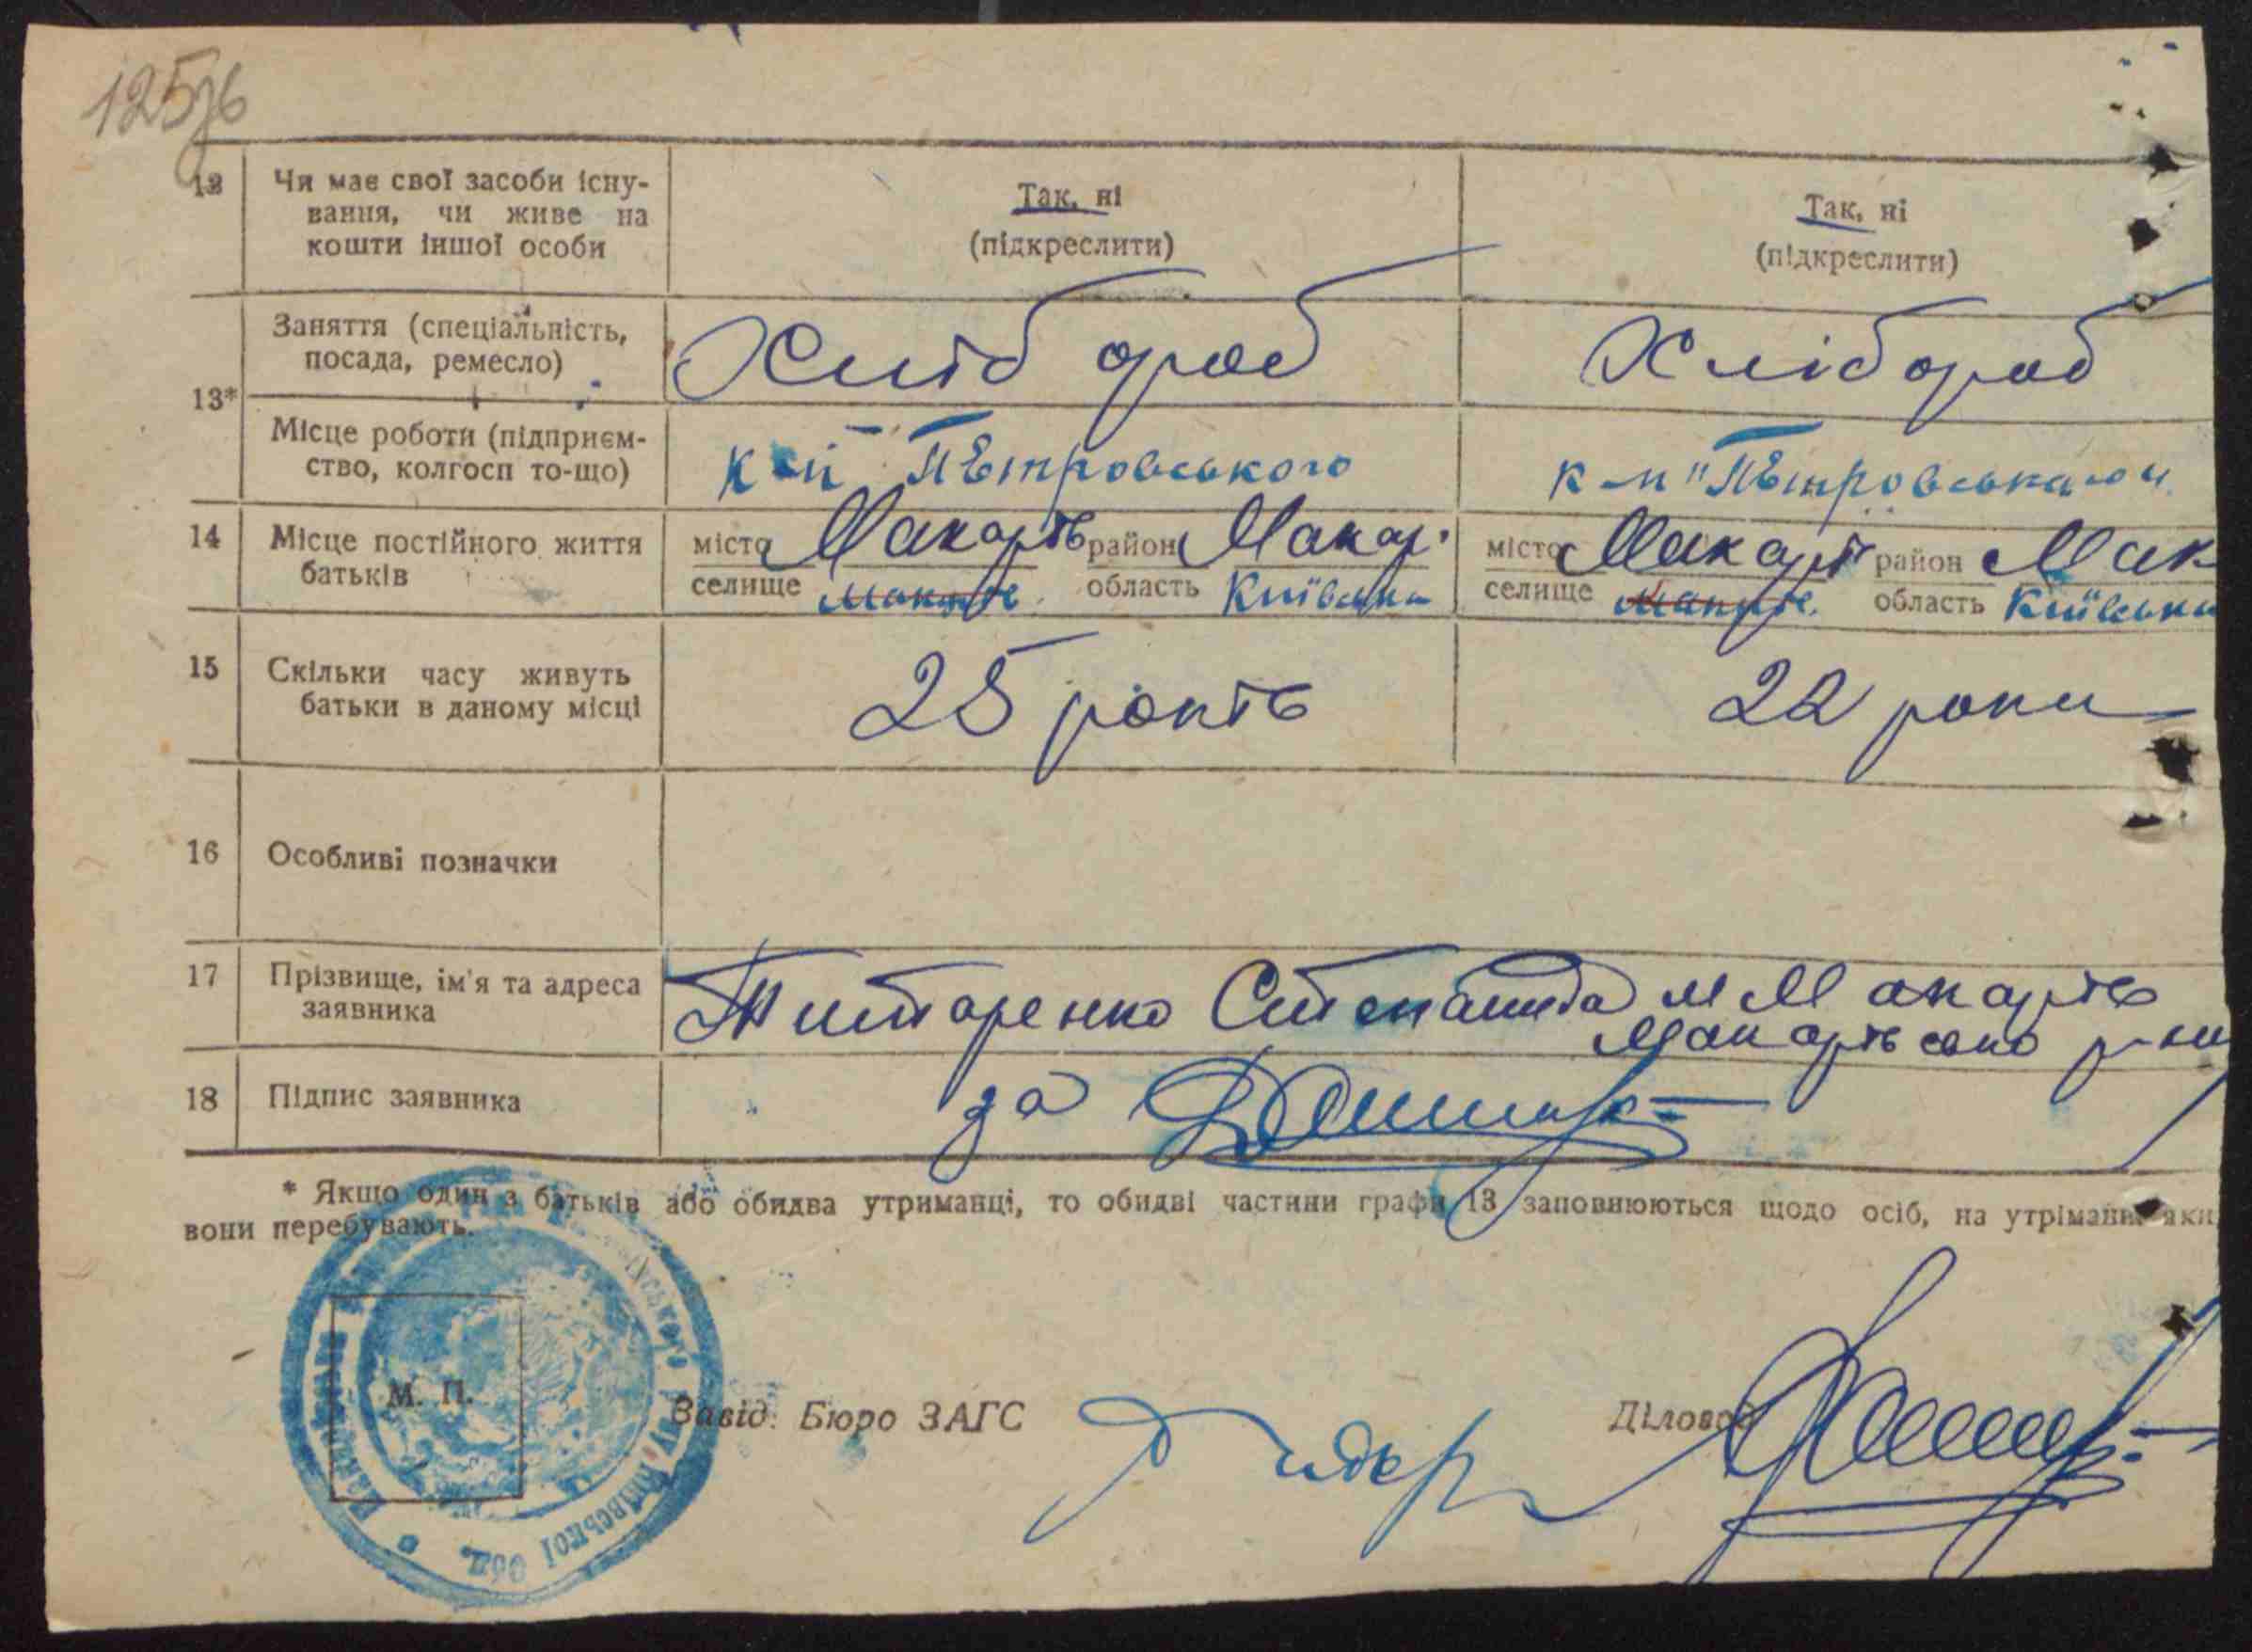 125
12
Чи має свої засоби існу-
вання, чи живе на
кошти іншої особи
Так, ні
(підкреслити)
Так, ні
(підкреслити)
13*
Заняття (спеціальність,
посада, ремесло)
Хліб ороб
Хлібороб
Місце роботи (підприєм-
ство, колгосп то-що)
Петровського
к-п "Петровського"
14
Місце постійного життя
батьків
місто Макарів район Макар.
селище Макарів область Київська
місто Макарів район Мак
селище Макарів область Київська
15
Скільки часу живуть
батьки в даному місці
25 років
22 роки
16
Особливі позначки
17
Прізвище, ім'я та адреса
заявника
Титаренко Степанида м Макарів
Макарівсько р-ну
18
Підпис заявника
за
* Якщо один з батьків або обидва утриманці, то обидві частини графи 13 заповнюються щодо осіб, на утріманні яки
вони перебувають.
М. П.
Київської обл.
Завід. Бюро ЗАГС
Діловод